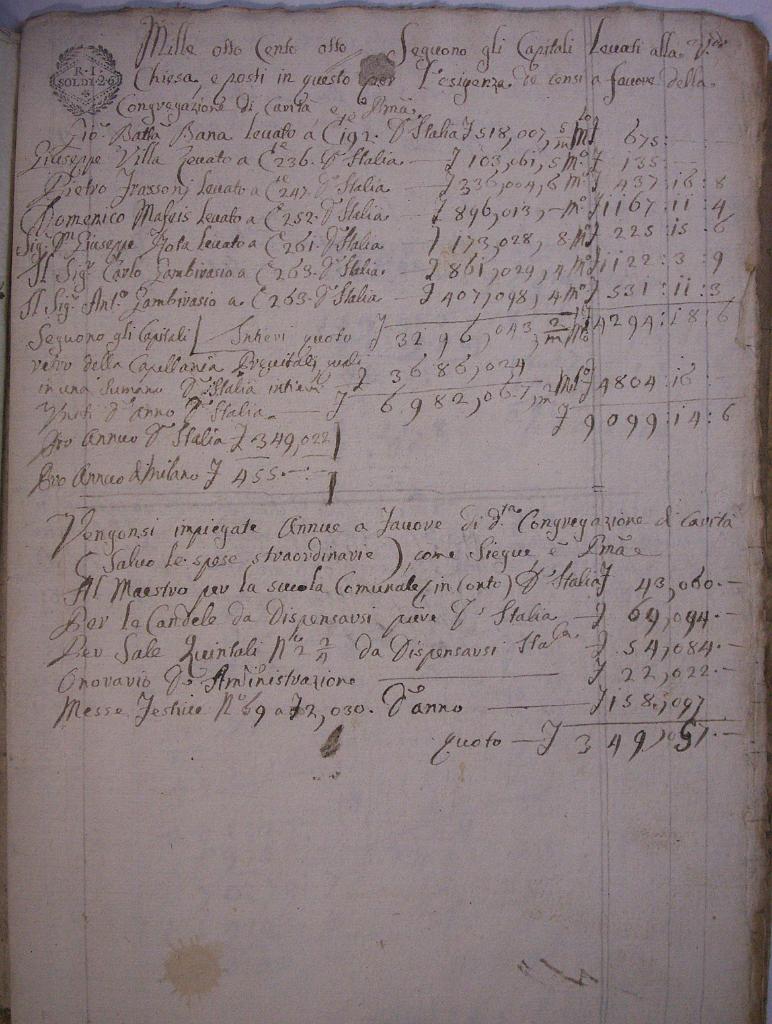 R. I.
SOLDI. 26
Mille otto Cento otto Seguono gli Capitali Levati alla
Chiesa, e posti in questo per l'esigenza de censi a favore della
Congregazione di Carità e Pmã.
Gio: Batta Bana levato a C 192. D' Italia £ 518,007, m £ 675:—
Giuseppe Villa levato a C 236. D' Italia — £ 103,061, 5 m £ 135—
Pietro Frassoni levato a C 247. D' Italia £ 336,004, 6 m £ 437:16:8
Domenico Mafeis levato a C 252. D' Italia £ 896,013,— m £ 1167:11:4
Sig. Giuseppe Rota levato a C 261. D' Italia £ 173,028, 8 m £ 225:15:6
Il Sig. Carlo Zambivasio a C 263. D' Italia £ 861,029, 4 m £ 1122:3:9
Il Sig. Ant.o Zambivasio a C 263. D' Italia — £ 407,098, 4 m £ 531:11:3
Seguono gli Capitali Intieri quoto £ 3296,043, 2/m £ 4294:18:6
vetro della Capellania £ 3686,024
in una summa D' Italia £ 4804:16
Uniti D' anno D' Italia — £ 6982,067, £ 9099:14:6
Pro Annuo D' Italia £ 349,022
Pro Annuo di Milano £ 455.—
Vengonsi impiegate Annue a Favore di d.ta Congregazione di Carità
(Salvo le spese straordinarie) come Siegue e Pmã e
Al Maestro per la scuola Comunale (in conto) D' Italia £ 43,060.—
Per le Candele da Dispensarsi pure D' Italia — £ 69,094.—
Per Sale Quintali N 2 da Dispensarsi Italia £ 54,084.—
Onorario D' Aministrazione — £ 22,022.—
Messe Festive N. 69 a £ 2,030. D' anno — £ 158,097
quoto — £ 349,057.—